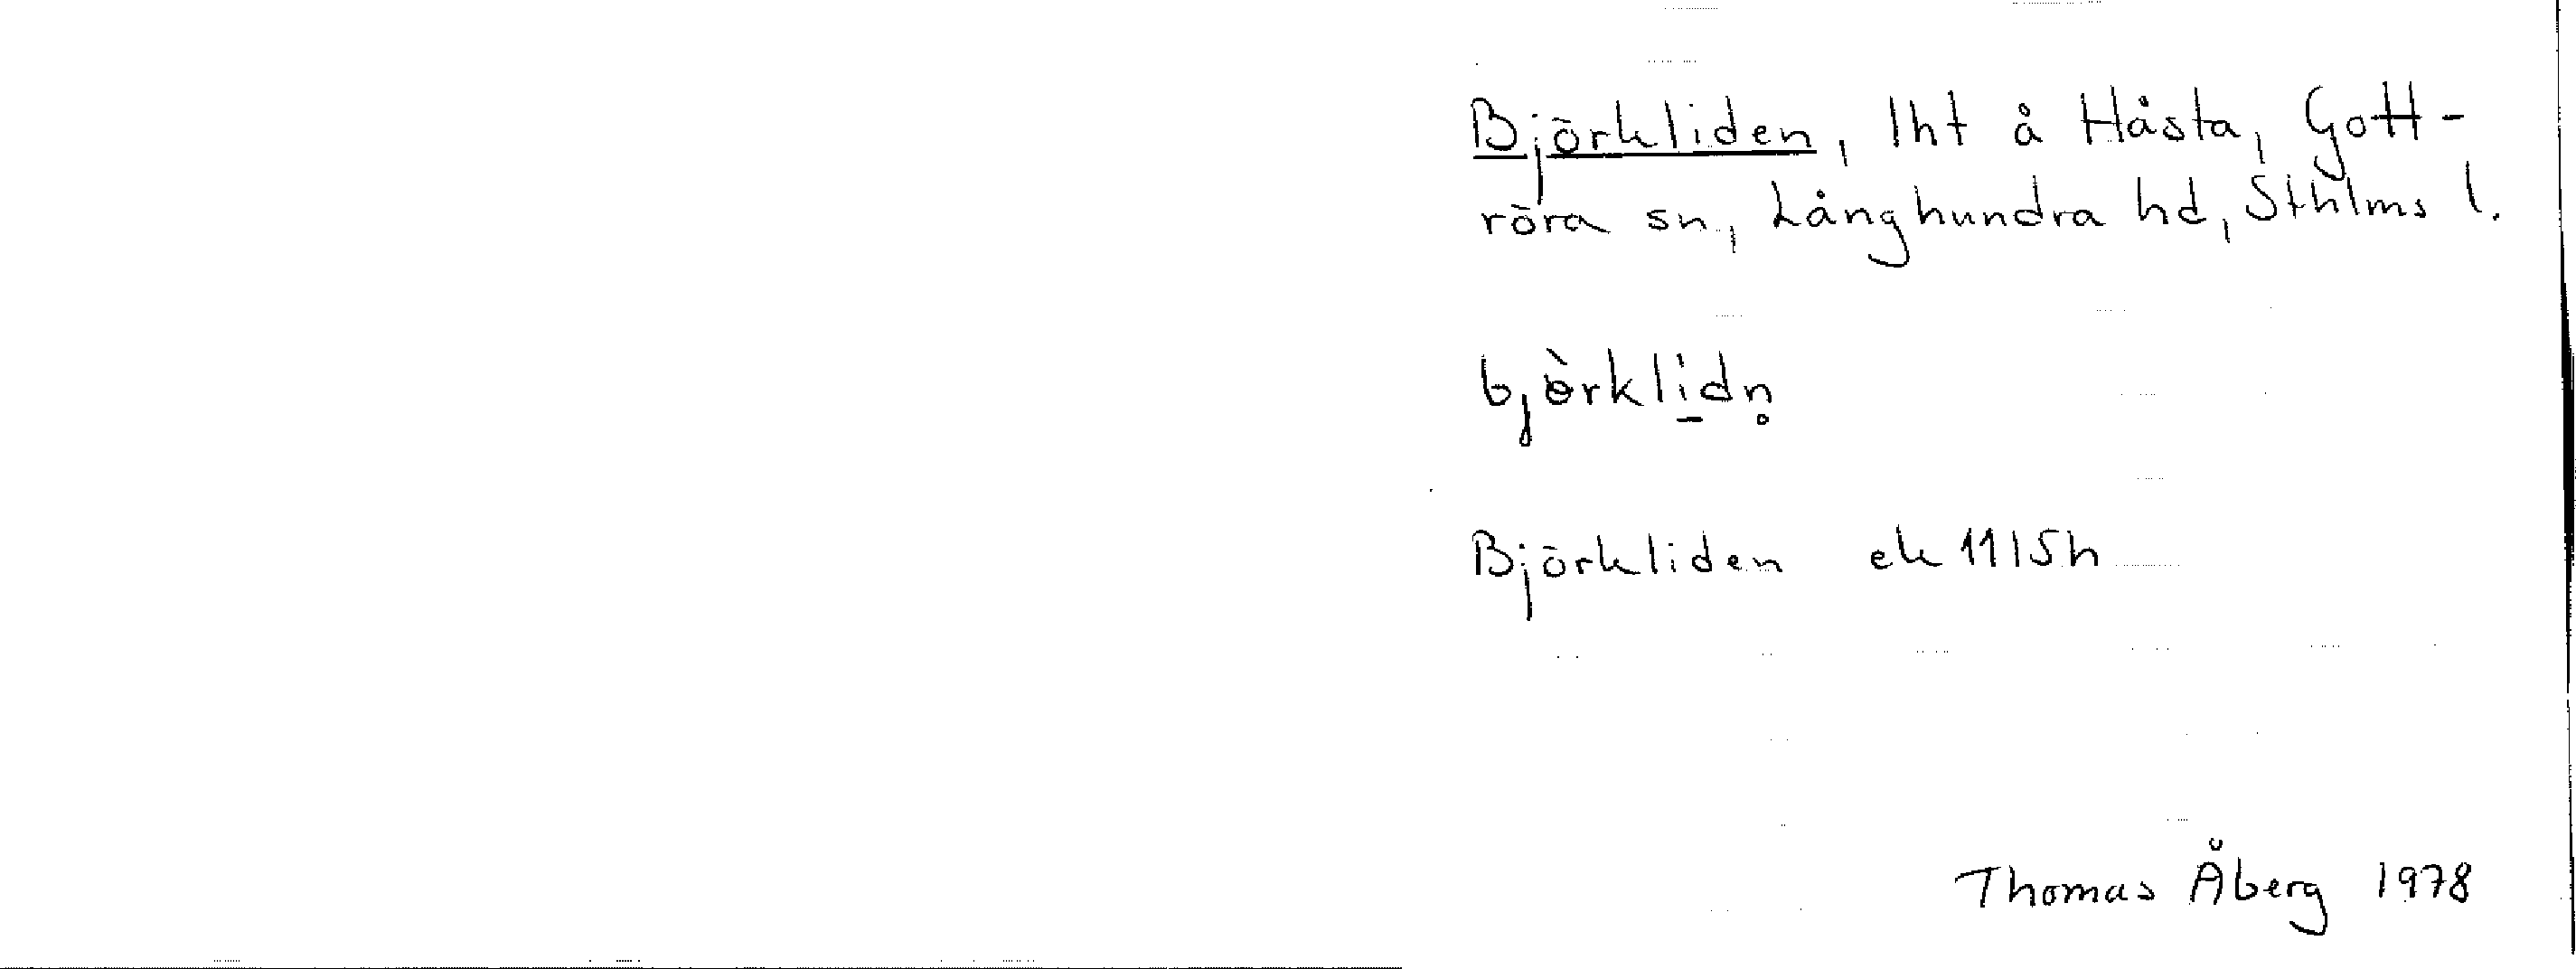 Björkliden, lht å Håsta, Gott-
röra sn, Långhundra hd, Sthlms l.
bjö̀rkli̱dn̥
Björkliden ek 11I5h
Thomas Åberg 1978